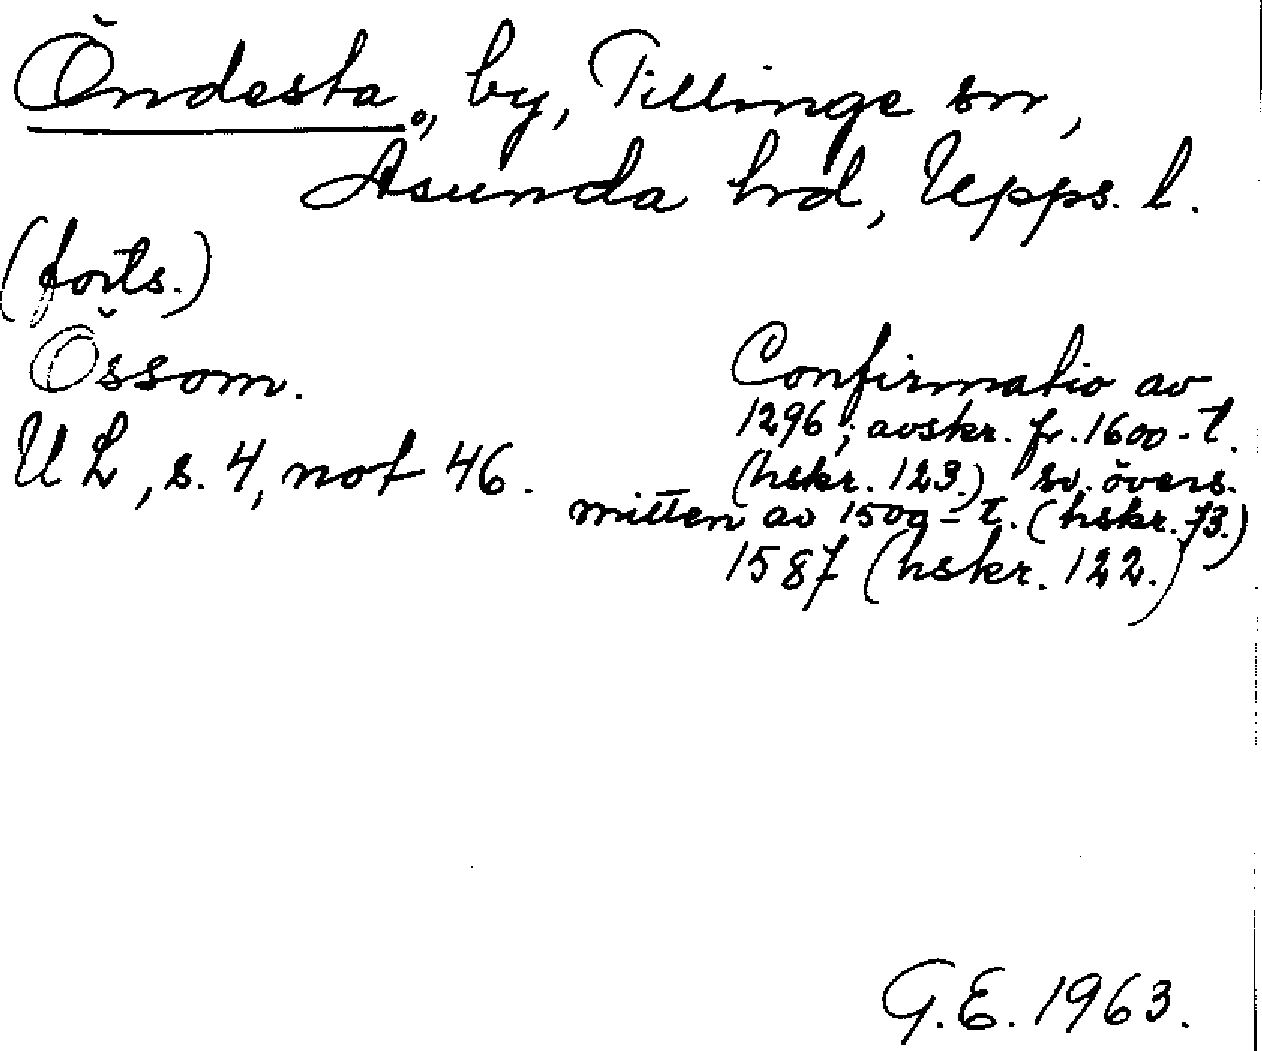 Öndesta, by, Tillinge sn,
Åsunda hrd, Upps. l.
(forts.)
Össom.
Confirmatio av
1296; avskr. fr. 1600-t.
UL, s. 4, not 46.
(hskr. 123.) sv. övers.
mitten av 1500-t. (hskr. 73.)
1587 (hskr. 122.)
G.E. 1963.